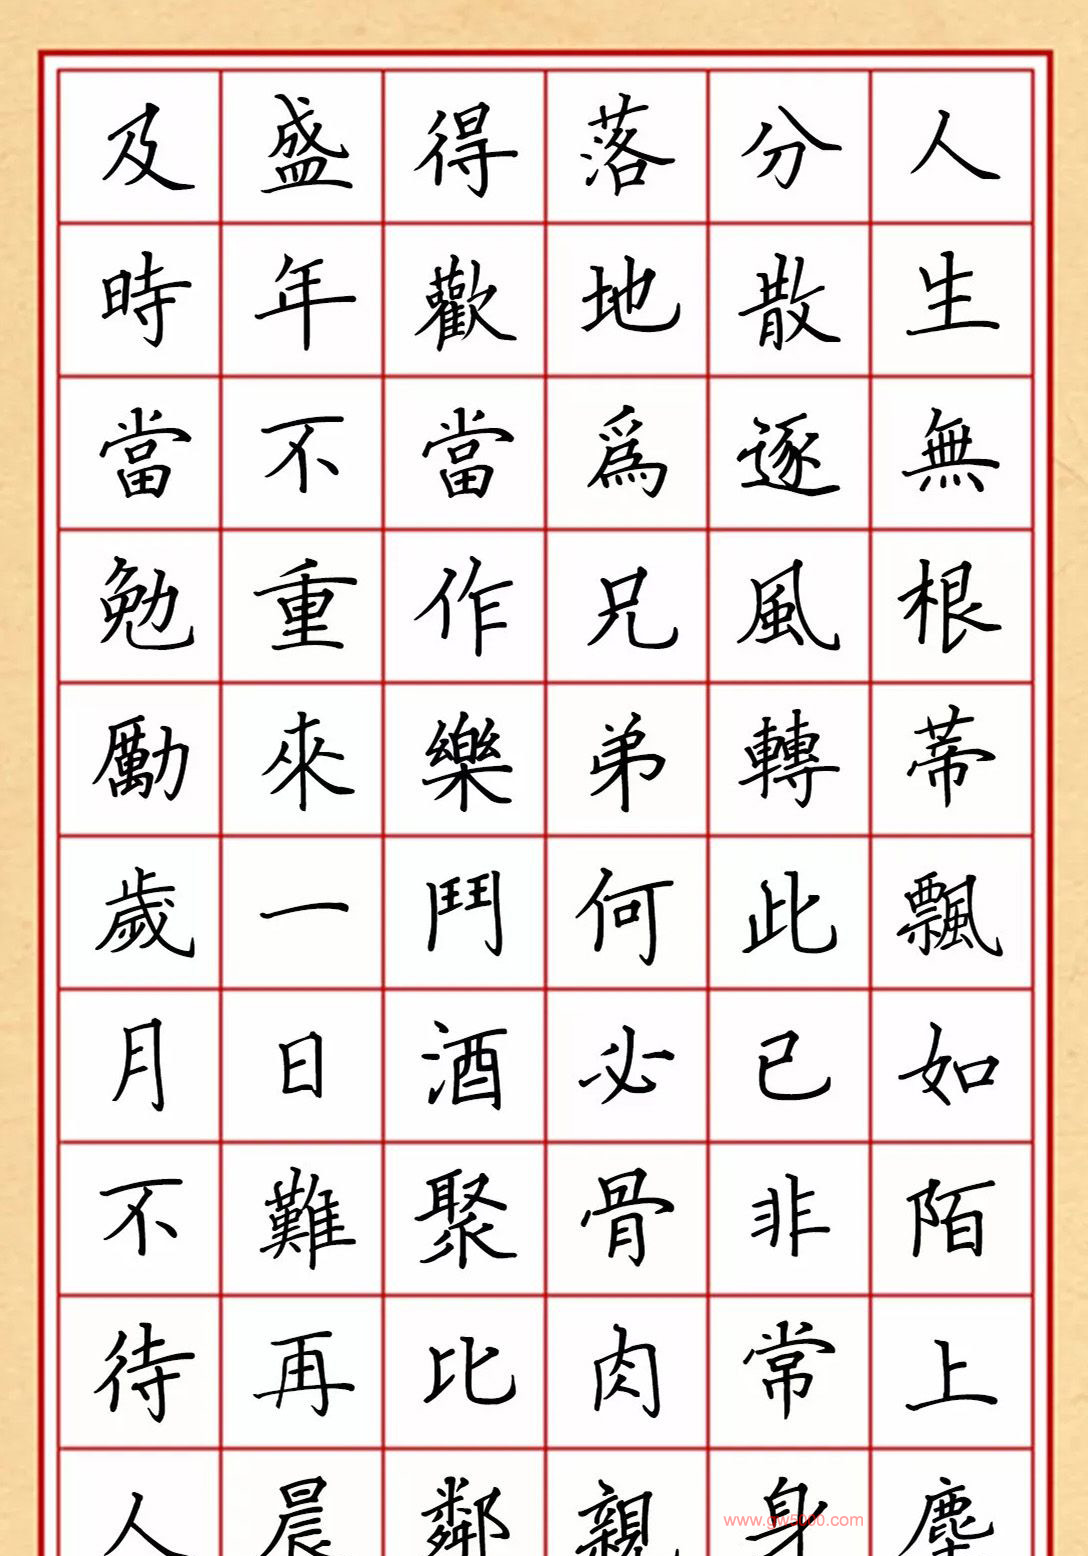 人生無根蒂飄如陌上塵
分散逐風轉此已非常身
落地爲兄弟何必骨肉親
得歡當作樂鬥酒聚比鄰
盛年不重來一日難再晨
及時當勉勵歲月不待人
www.gw5000.com